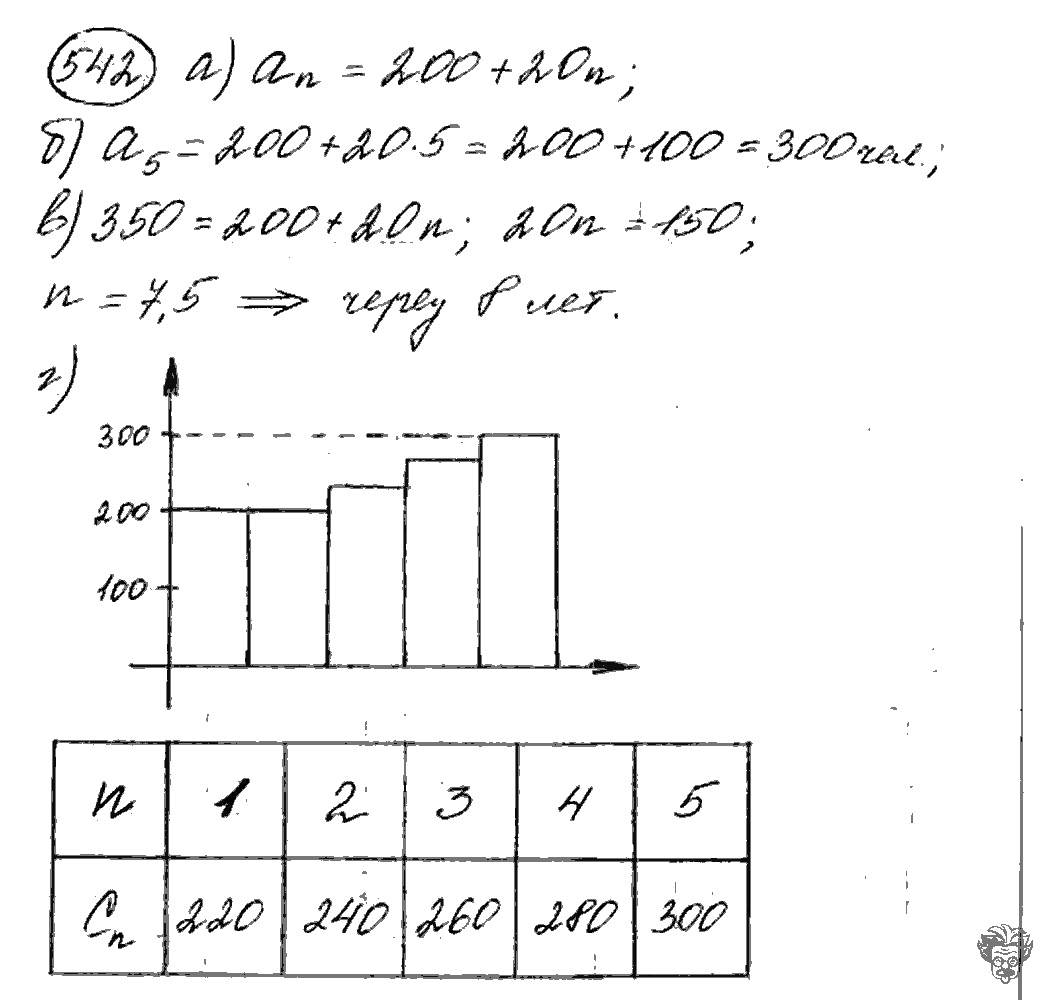 542 а) aₙ = 200 + 20n;
б) a₅ = 200 + 20·5 = 200 + 100 = 300 чел.;
в) 350 = 200 + 20n; 20n = 150;
n = 7,5 ⇒ через 8 лет.
г)
300
200
100
n 1 2 3 4 5
Cₙ 220 240 260 280 300